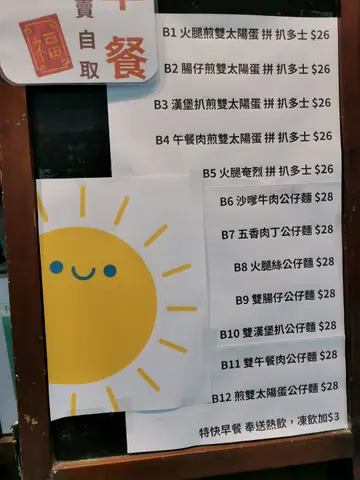 賣自取
餐
福
B1 火腿煎雙太陽蛋 拼 扒多士 $26
B2 腸仔煎雙太陽蛋 拼 扒多士 $26
B3 漢堡扒煎雙太陽蛋 拼 扒多士 $26
B4 午餐肉煎雙太陽蛋 拼 扒多士 $26
B5 火腿奄烈 拼 扒多士 $26
B6 沙嗲牛肉公仔麵 $28
B7 五香肉丁公仔麵 $28
B8 火腿絲公仔麵 $28
B9 雙腸仔公仔麵 $28
B10 雙漢堡扒公仔麵 $28
B11 雙午餐肉公仔麵 $28
B12 煎雙太陽蛋公仔麵 $28
特快早餐 奉送熱飲，凍飲加$3